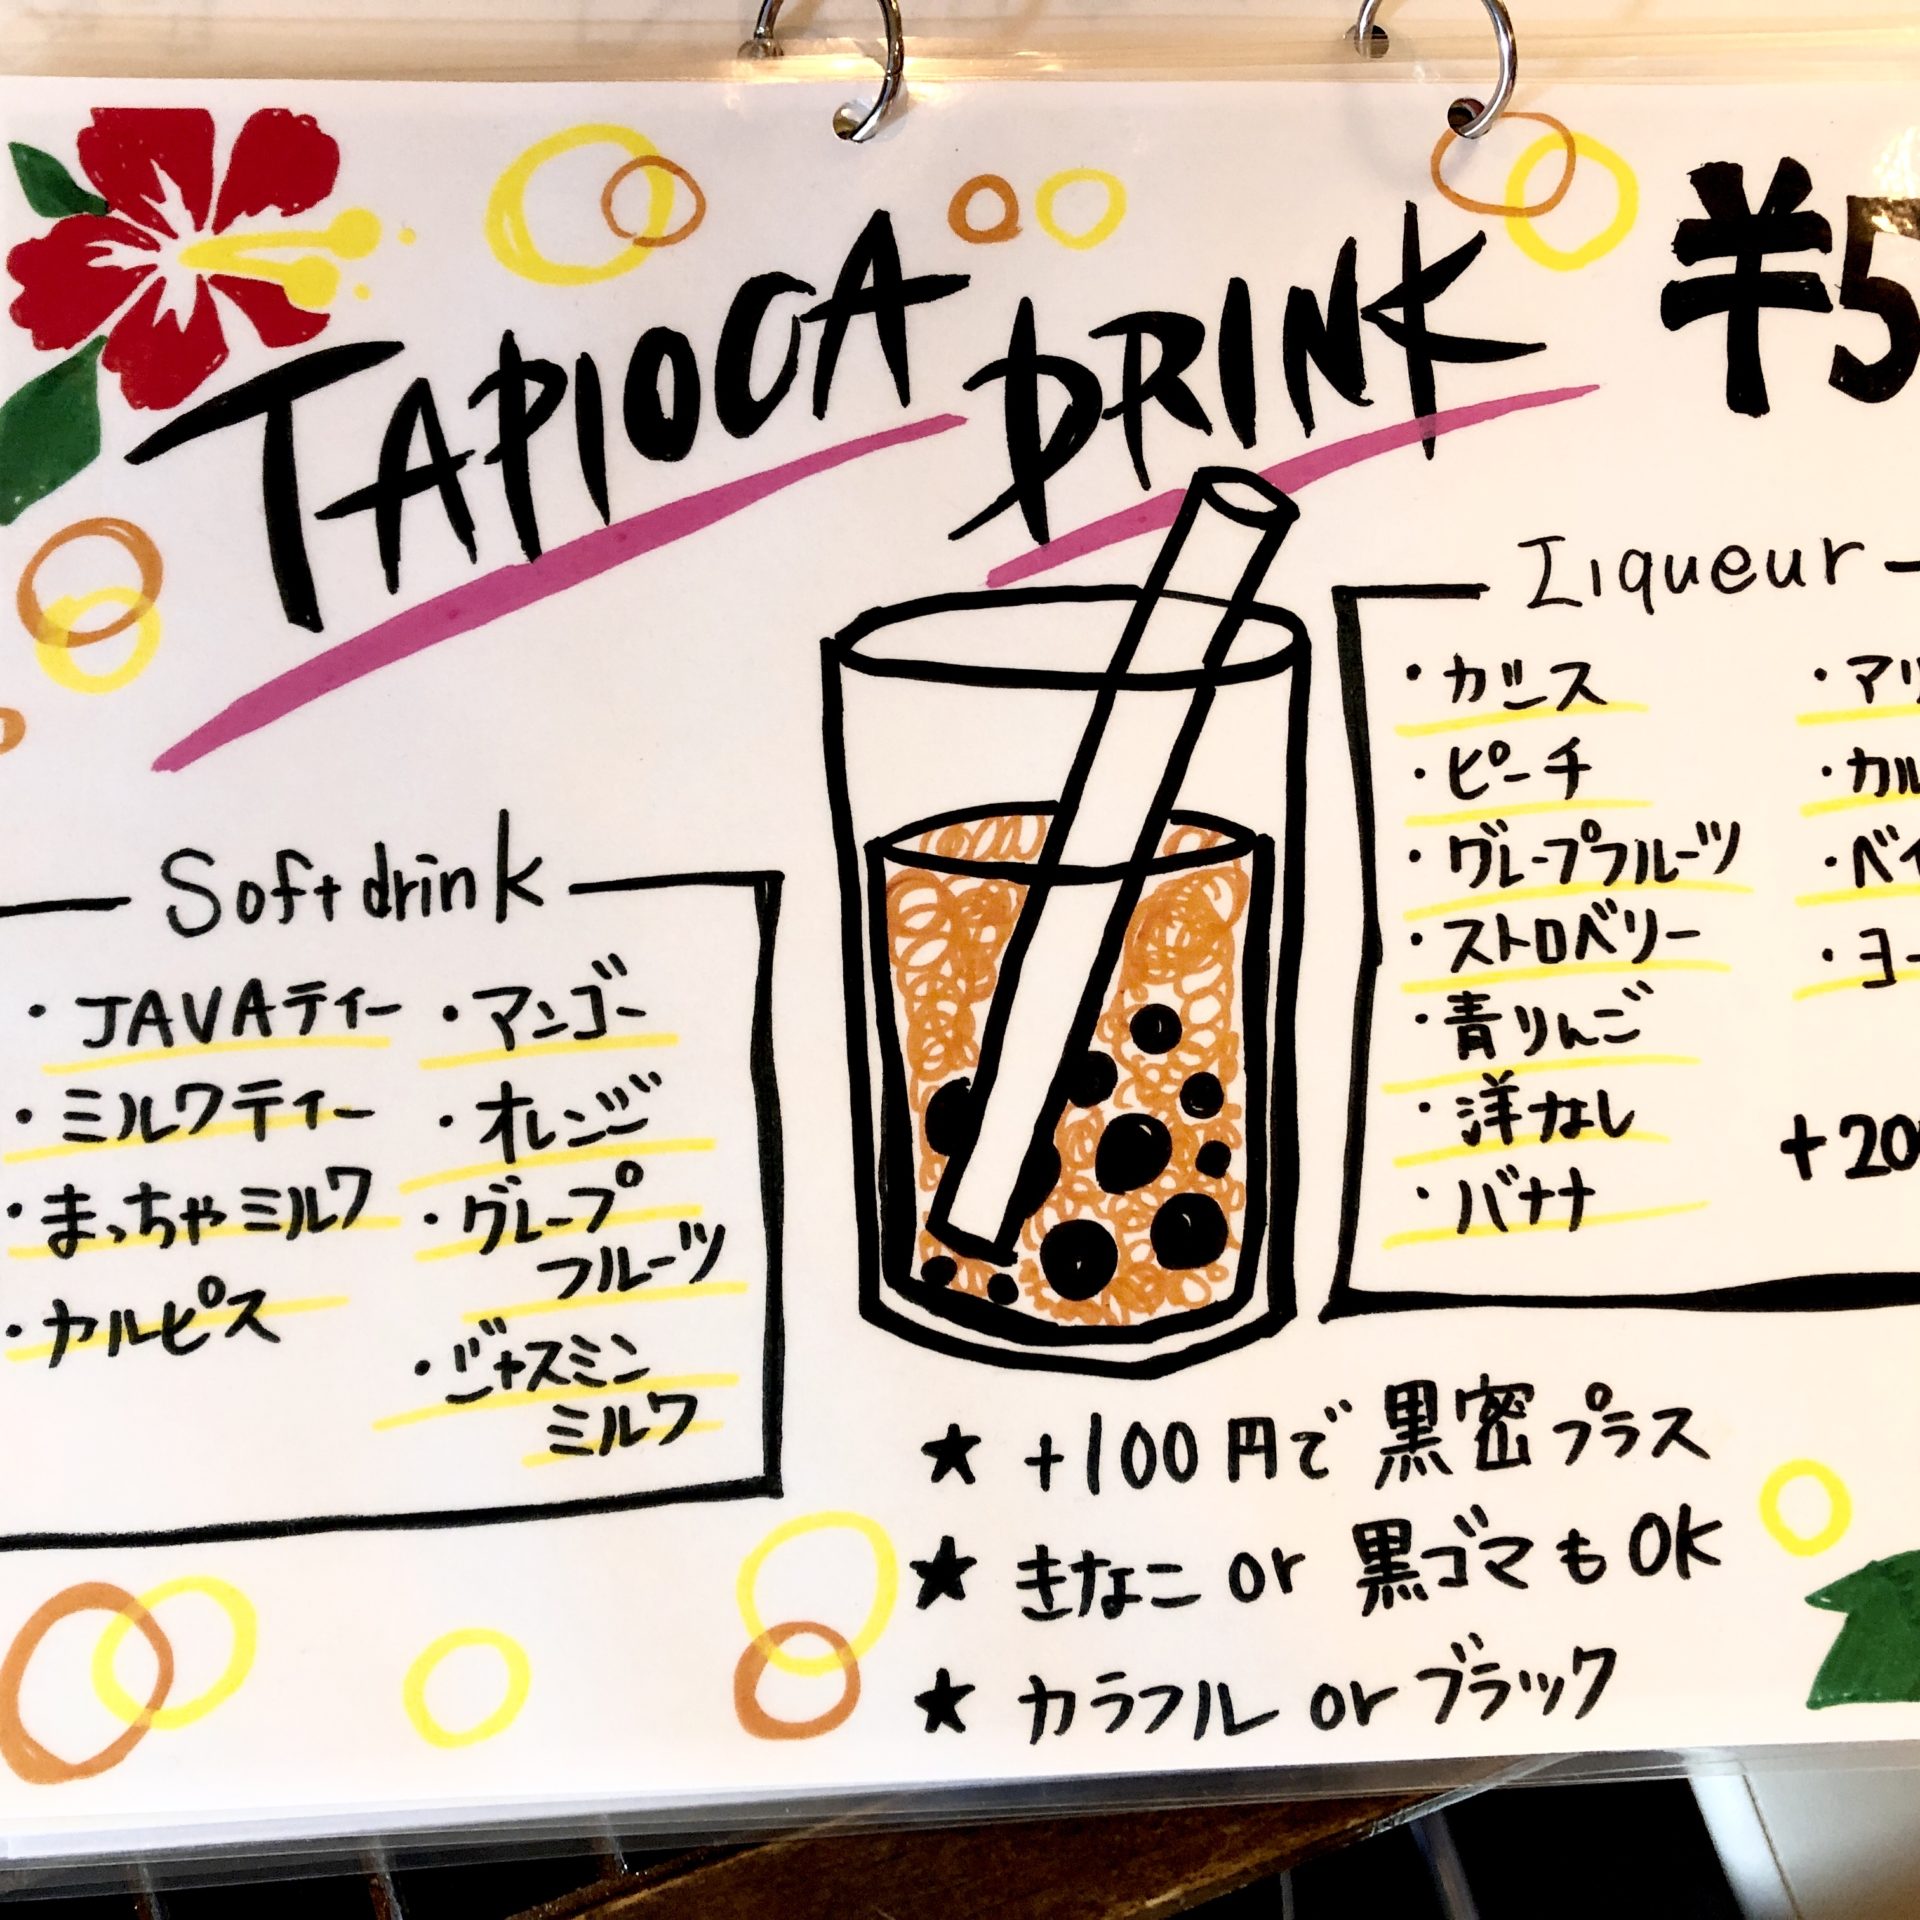 TAPIOCA DRINK ¥5
Soft drink
・JAVAティー
・ミルクティー
・まっちゃミルク
・カルピス
・マンゴー
・オレンジ
・グレープ
フルーツ
・ジャスミン
ミルク
Liqueur
・カシス
・ピーチ
・グレープフルーツ
・ストロベリー
・青りんご
・洋なし
・バナナ
・カル
・ベイ
・ヨー
+20
★ +100円で黒密プラス
★ きなこ or 黒ゴマもOK
★ カラフル or ブラック